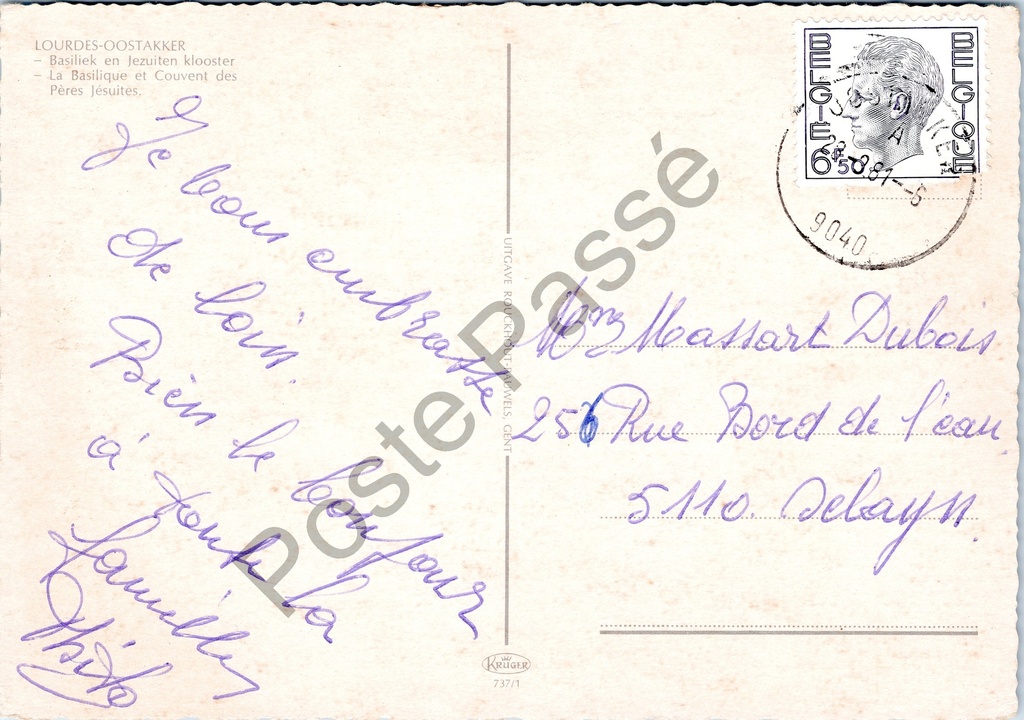 LOURDES-OOSTAKKER
– Basiliek en Jezuiten klooster
– La Basilique et Couvent des
Pères Jésuites.
Je vous embrasse
de loin.
Bien le bonjour
à toute la
famille
BELGIE
BELGIQUE
6F50
A
-8.81--6
9040
UITGAVE ROUCKHOUT-PAUWELS, GENT
Massart Dubois
256 Rue Bord de l'eau
5110. Selayn
KRÜGER
737/1
Poste Passé